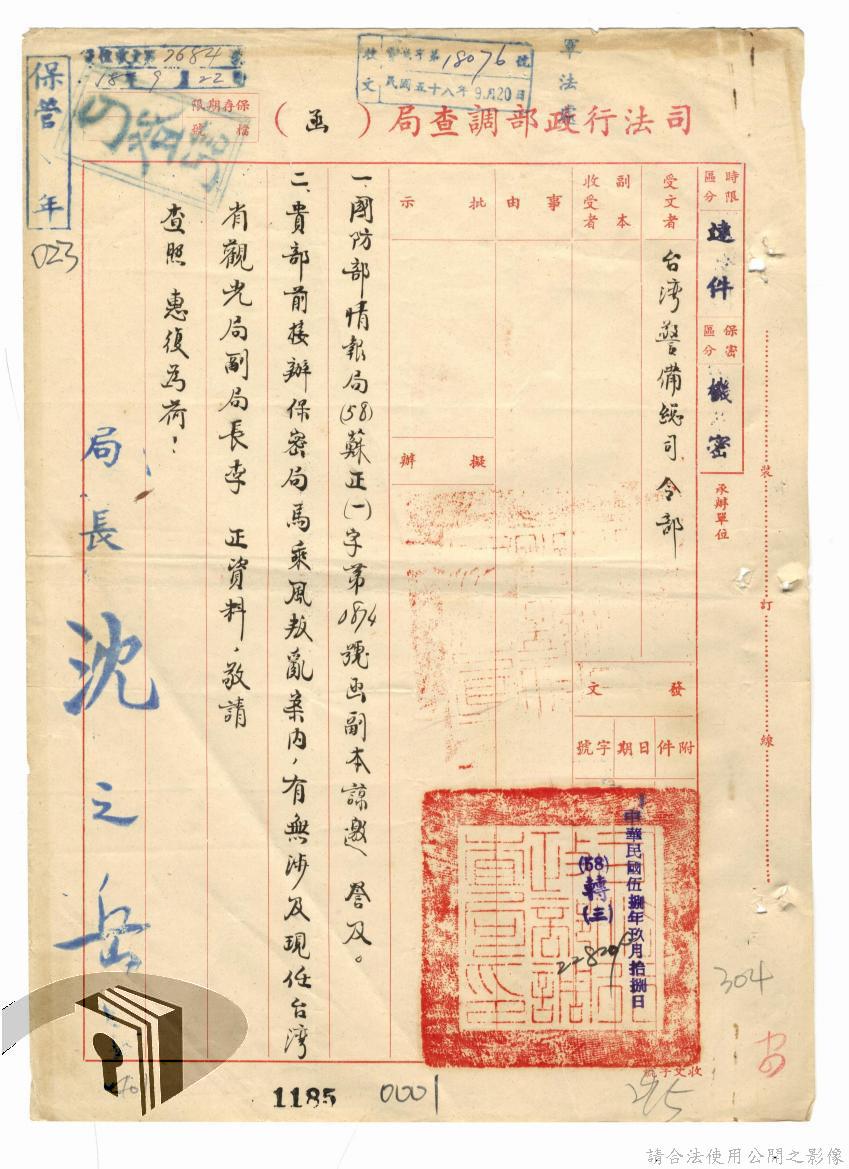 司法行政部調查局（函）
保存期限
檔號
保管 年
023
第7684號
18年9月22
收文
字第18076號
民國五十八年9月20日
軍法處
時限區分
速件
保密區分
機密
承辦單位
裝
訂
線
受文者
台灣警備總司令部
副本收受者
事由
批示
擬辦
發文
附件
日期
字號
中華民國伍捌年玖月拾捌日
(58)轉(三)
一、國防部情報局(58)蘇正(一)字第0874號函副本諒邀 詧及。
二、貴部前接辦保密局馬乘風叛亂案內，有無涉及現任台灣
省觀光局副局長李 正資料，敬請
查照 惠復為荷！
局長 沈之岳
304
收文字號
295
1185
0001
請合法使用公開之影像